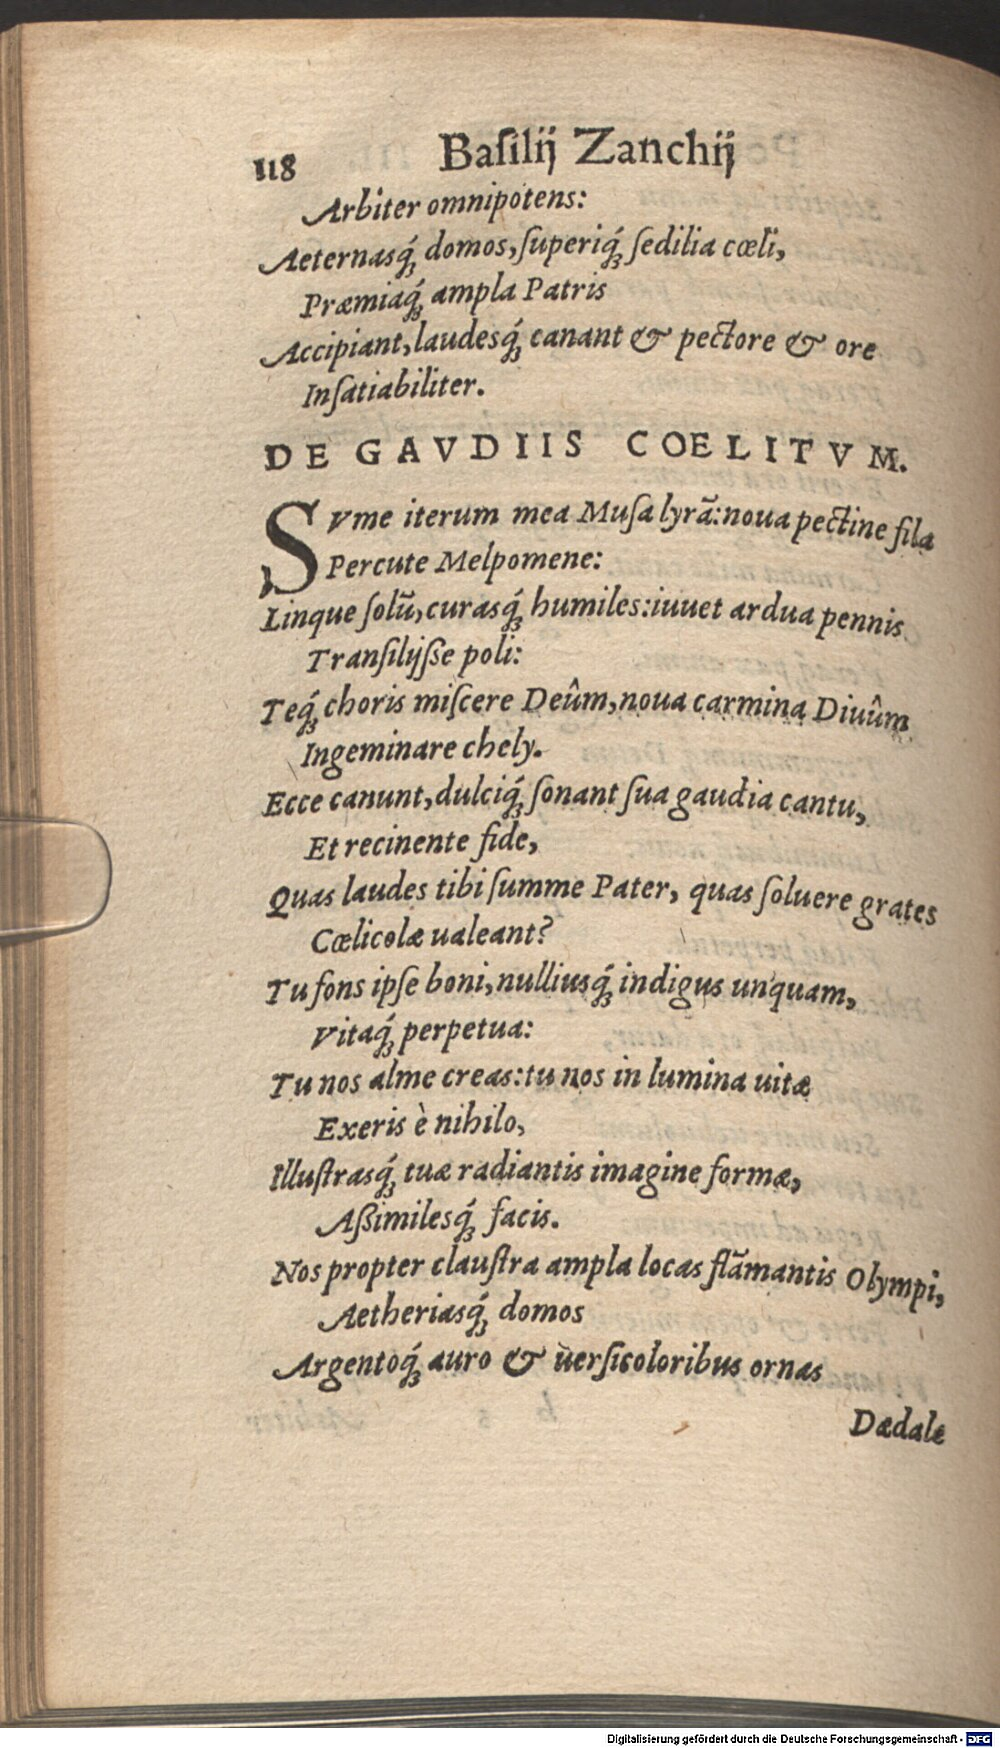 118 Baſilij Zanchij
Arbiter omnipotens:
Aeternasq́; domos, ſuperiq́; ſedilia cœli,
Præmiaq́; ampla Patris
Accipiant, laudesq́; canant & pectore & ore
Inſatiabiliter.
DE GAVDIIS COELITVM.
SVme iterum mea Muſa lyrā: noua pectine fila
Percute Melpomene:
Linque ſolū, curasq́; humiles: iuuet ardua pennis
Tranſilijſſe poli:
Teq́; choris miſcere Deûm, noua carmina Diuûm
Ingeminare chely.
Ecce canunt, dulciq́; ſonant ſua gaudia cantu,
Et recinente fide,
Quas laudes tibi ſumme Pater, quas ſoluere grates
Cœlicolæ ualeant?
Tu fons ipſe boni, nulliusq́; indigus unquam,
Vitaq́; perpetua:
Tu nos alme creas: tu nos in lumina uitæ
Exeris è nihilo,
Illuſtrasq́; tuæ radiantis imagine formæ,
Aßimilesq́; facis.
Nos propter clauſtra ampla locas flāmantis Olympi,
Aetheriasq́; domos
Argentoq́; auro & uerſicoloribus ornas
Dædale
Digitalisierung gefördert durch die Deutsche Forschungsgemeinschaft - DFG